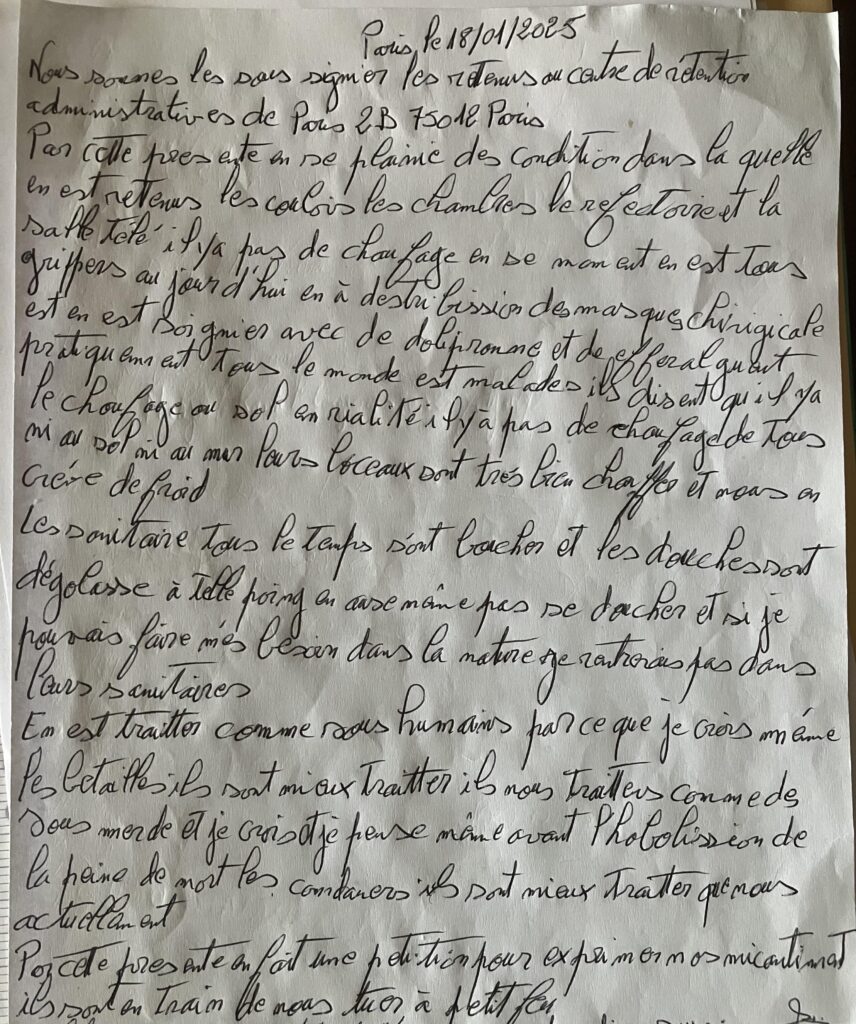 Paris, le 18/01/2025
Nous sommes les sous signier les retenus au centre de rétention
administratives de Paris 2B 75012 Paris
Par cette presente en se plainie des condition dans la quelle
en est retenus les couloirs les chambres le refectoire et la
salle télé il y'a pas de chaufage en se moment en est tous
grippers au jourd'hui en à destribission des masques chirigicale
est en est soignier avec de dolipronne et de efferalguant
pratiquement tous le monde est malades ils disent qu'il y a
le chaufage au sol en rialité il y'a pas de chaufage de tous
ni au sol ni au mur leurs loceaux sont trés bien chauffer et nous on
crève de froid
Les sanitaire tous le temps sont boucher et les douches sont
dégolasse à telle poing en ause même pas se doucher et si je
pouvais faire més besoin dans la nature je rentrerais pas dans
leurs sanitaires
En est traitter comme sous humains parce que je crois même
les betailles ils sont mieux traitter ils nous traitters comme des
sous merde et je crois et je pense même avant l'hobolission de
la peine de mort les condaners ils sont mieux traitter que nous
actuellement
Par cete presente en fait une petition pour exprimer nos micontimat
ils sont en train de nous tuer à petit feu